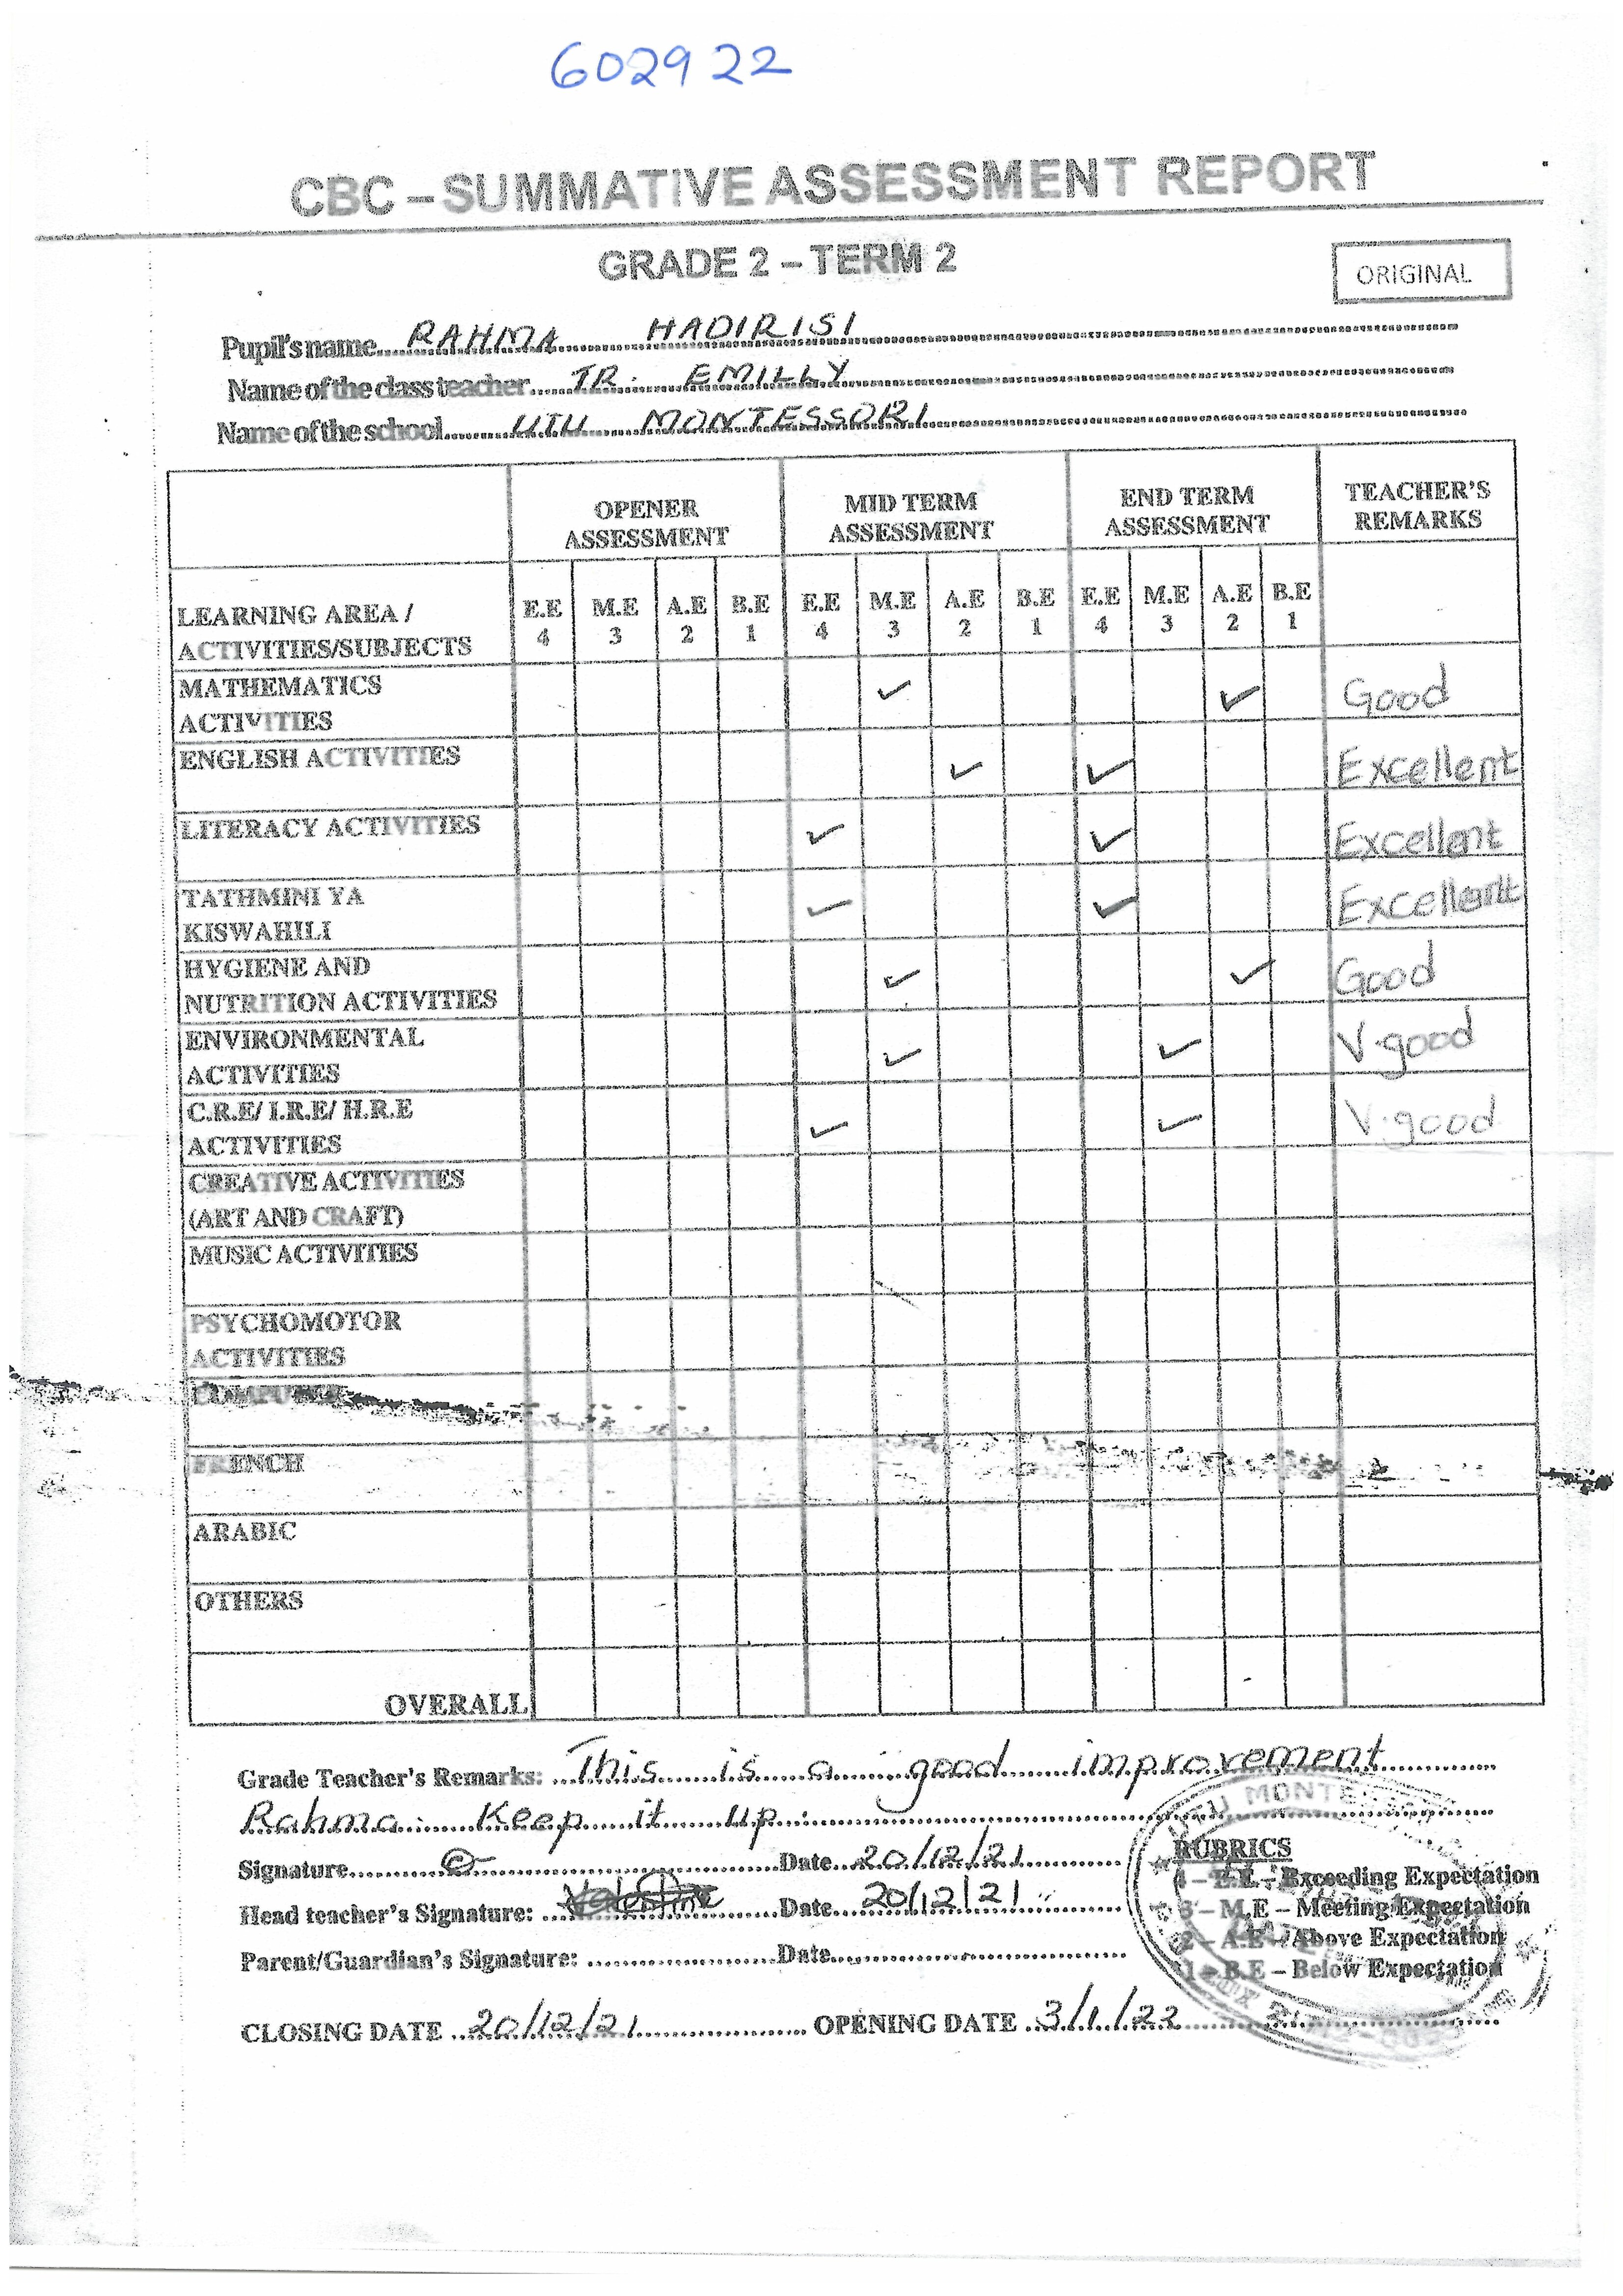 602922
CBC – SUMMATIVE ASSESSMENT REPORT
GRADE 2 – TERM 2
ORIGINAL
Pupil's name RAHMA HADIRISI
Name of the class teacher TR. EMILLY
Name of the school UTU MONTESSORI
OPENER ASSESSMENT MID TERM ASSESSMENT END TERM ASSESSMENT TEACHER'S REMARKS
LEARNING AREA / ACTIVITIES/SUBJECTS E.E 4 M.E 3 A.E 2 B.E 1 E.E 4 M.E 3 A.E 2 B.E 1 E.E 4 M.E 3 A.E 2 B.E 1
MATHEMATICS ACTIVITIES ✓ ✓ Good
ENGLISH ACTIVITIES ✓ ✓ Excellent
LITERACY ACTIVITIES ✓ ✓ Excellent
TATHMINI YA KISWAHILI ✓ ✓ Excellent
HYGIENE AND NUTRITION ACTIVITIES ✓ ✓ Good
ENVIRONMENTAL ACTIVITIES ✓ ✓ V.good
C.R.E/ I.R.E/ H.R.E ACTIVITIES ✓ ✓ V.good
CREATIVE ACTIVITIES (ART AND CRAFT)
MUSIC ACTIVITIES
PSYCHOMOTOR ACTIVITIES
COMPUTER
FRENCH
ARABIC
OTHERS
OVERALL
Grade Teacher's Remarks: This is a good improvement
Rahma. Keep it up.
Signature Date 20/12/21
Head teacher's Signature: Date 20/12/21
Parent/Guardian's Signature: Date
RUBRICS
4 – E.E – Exceeding Expectation
3 – M.E – Meeting Expectation
2 – A.E – Above Expectation
1 – B.E – Below Expectation
CLOSING DATE 20/12/21 OPENING DATE 3/1/22